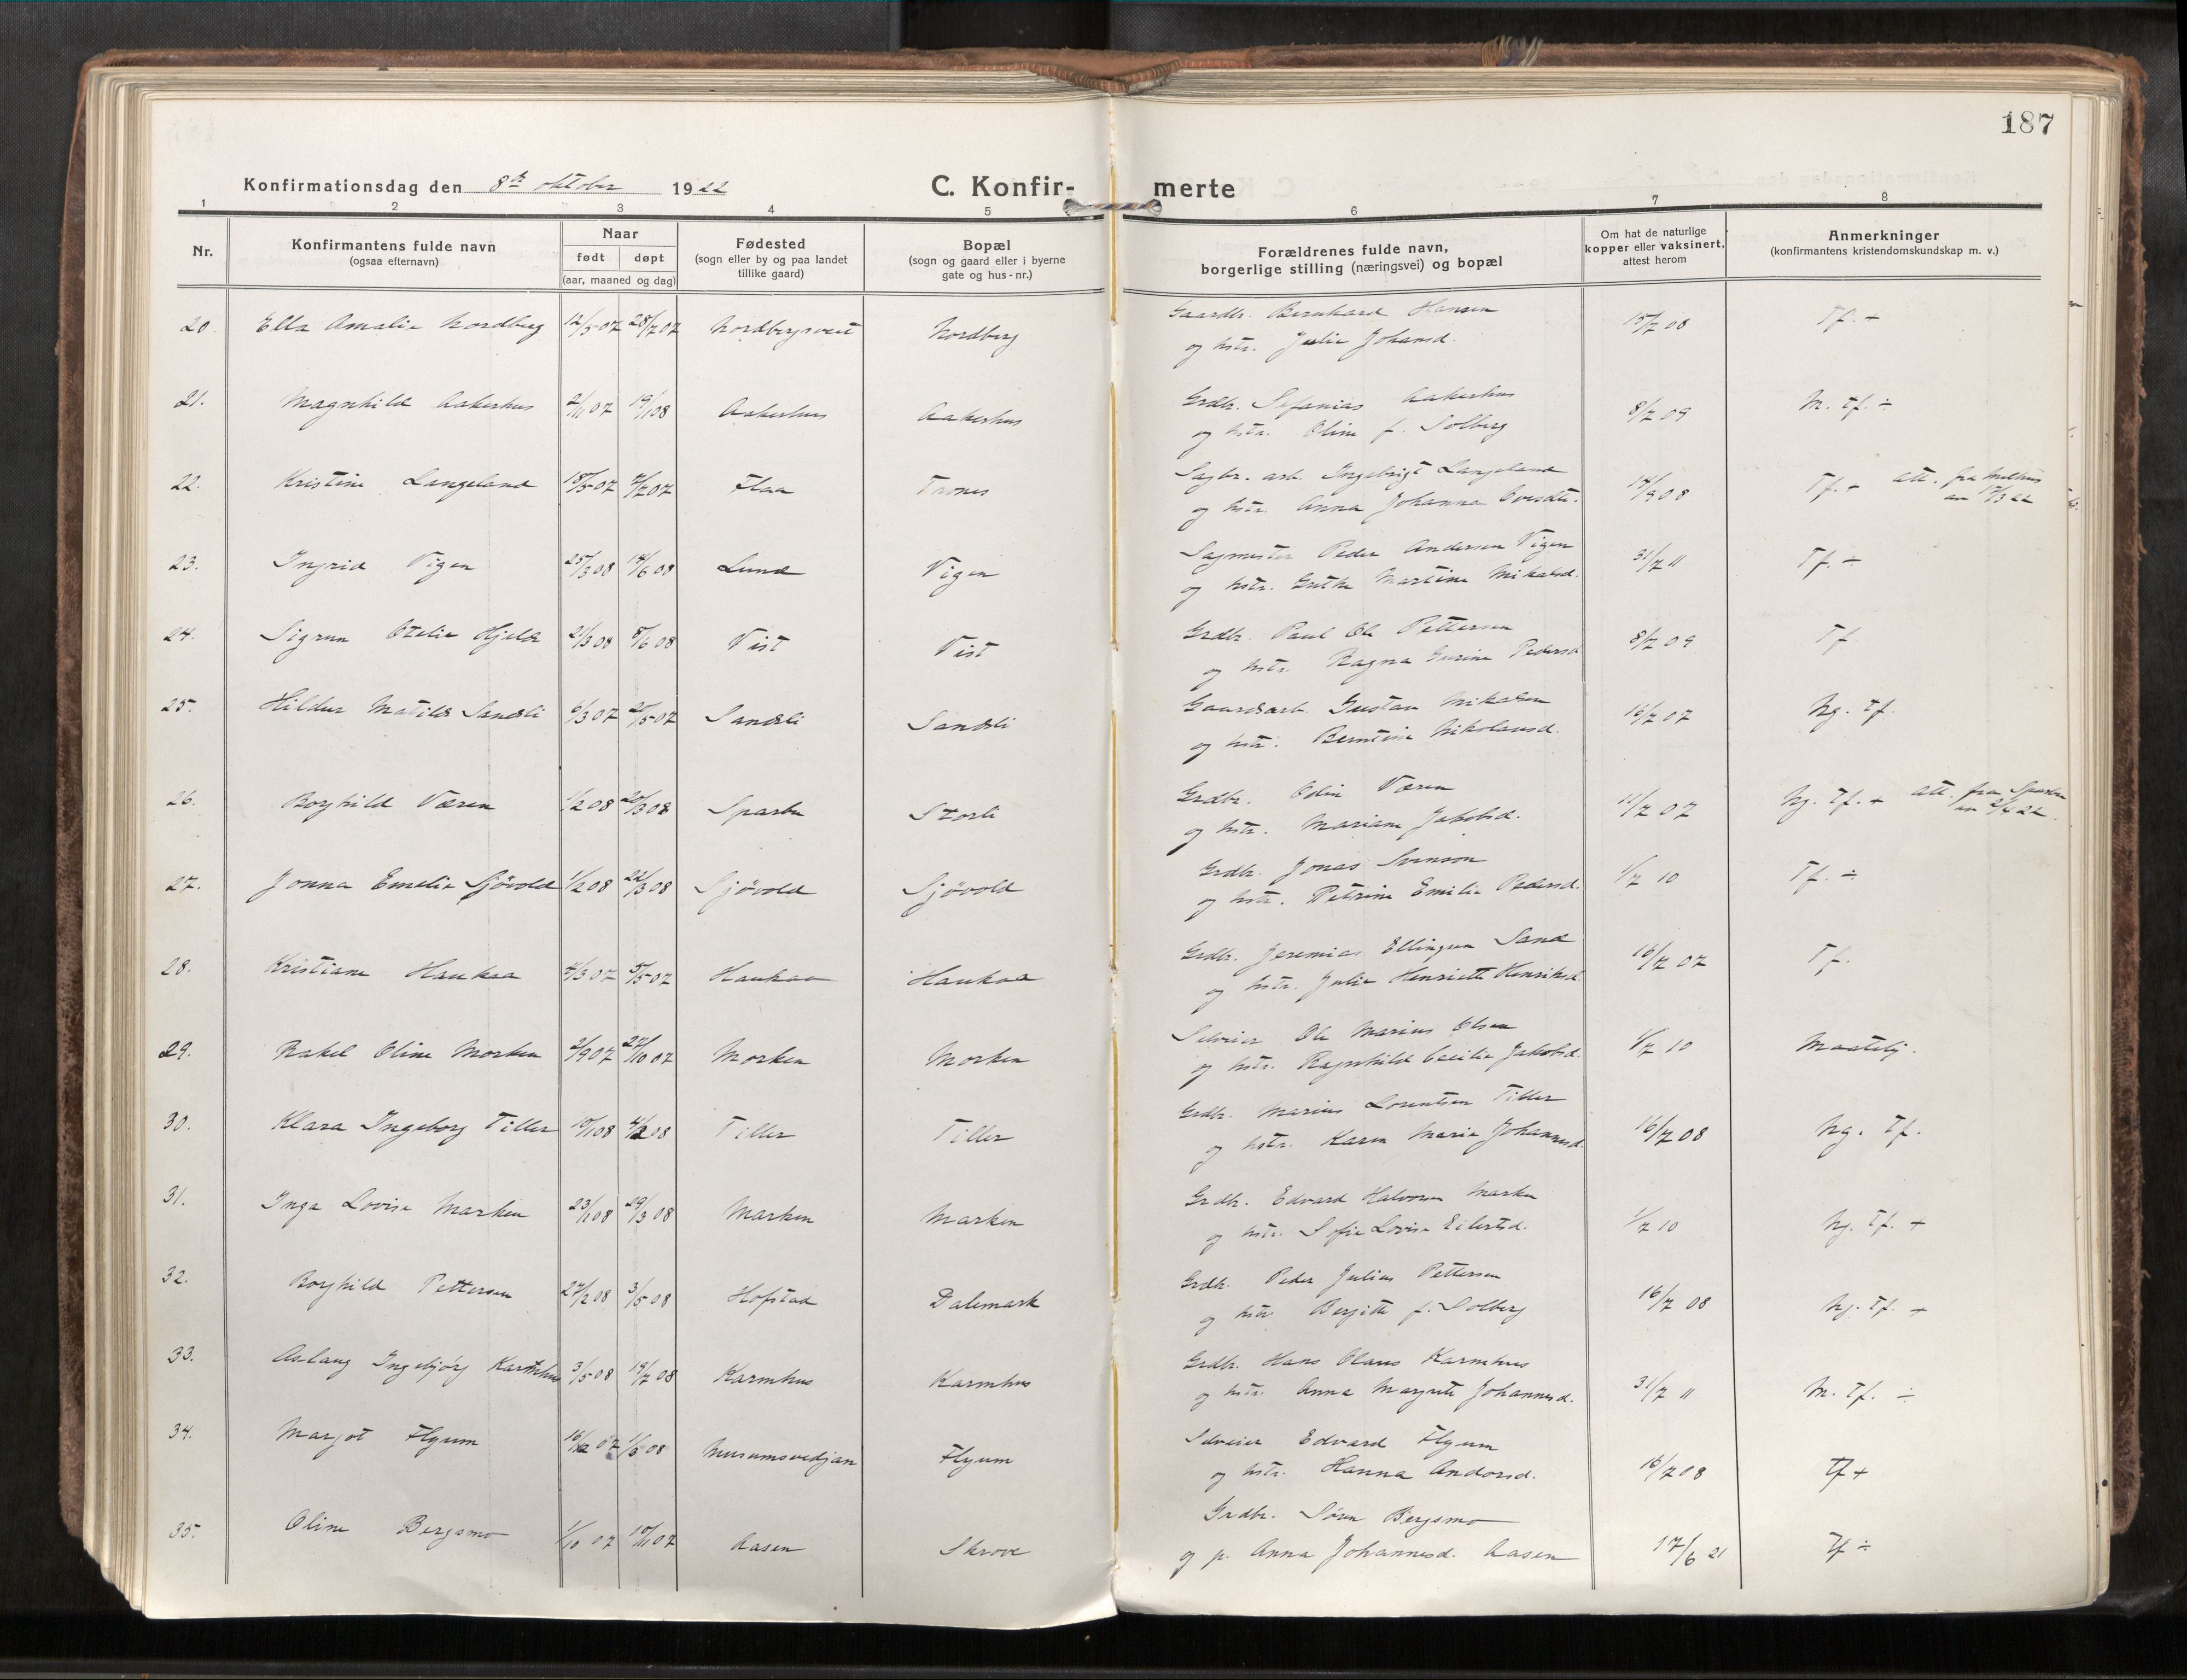 187
Konfirmationsdag den 8de oktober 1922 C. Konfir- merte
1 2 3 4 5 6 7 8
Nr. Konfirmantens fulde navn (ogsaa efternavn) Naar født døpt (aar, maaned og dag) Fødested (sogn eller by og paa landet tillike gaard) Bopæl (sogn og gaard eller i byerne gate og hus-nr.) Forældrenes fulde navn, borgerlige stilling (næringsvei) og bopæl Om hat de naturlige kopper eller vaksinert, attest herom Anmerkninger (konfirmantens kristendomskundskap m. v.)
20. Ella Amalie Nordberg 12/5 07 28/7 07 Nordbergsveet Nordberg Gaardbr. Bernhard Hansen 15/7 08 Tf. +
og hstr. Julie Johansd.
21. Magnhild Aakerhus 2/11 07 19/1 08 Aakerhus Aakerhus Grdbr. Sefanias Aakerhus 8/7 09 M. tf. ÷
og hstr. Oline f. Solberg
22. Kristine Langeland 18/5 07 7/7 07 Flaa Trones Sagbr. arb. Ingebrigt Langeland 14/9 08 Tf. + att. fra Melhus
og hstr. Anna Johanna av 17/3 22
23. Ingrid Vigen 25/3 08 14/6 08 Lund Vigen Sagmester Peder Andersen Vigen 31/7 11 Tf. ÷
og hstr. Martine Mikalsd.
24. Sigrun Otelie Hjelde 21/3 08 8/6 08 Vist Vist Grdbr. Paul Ole Pettersen 8/7 09 Tf
og hstr. Ragna Gurine Pedersd
25. Hildur Matilde Sandsli 6/3 07 20/5 07 Sandsli Sandsli Gaardsarb. Gustav Mikalsen 16/7 07 Ng. tf.
og hstr. Berntine Nikolausd.
26. Borghild Væren 1/2 08 20/3 08 Sparbu Storli Grdbr. Odin Væren 11/7 07 Ng. Tf. + att. fra Sparbu
og hstr. Mariane Jakobsd. av 2/4 22.
27. Jonna Emelie Sjövold 1/2 08 22/3 08 Sjövold Sjövold Grdbr. Jonas Svenson 1/7 10 Tf. ÷
og hstr. Petrine Emilie Pedersd.
28. Kristiane Haukaa 4/3 07 5/5 07 Haukaa Haukaa Grdbr. Jeremias Ellingsen Sand 16/7 07 Tf.
og hstr. Julie Henriette Henriksd.
29. Rakel Oline Morken 2/9 07 27/10 07 Morken Morken Selveier Ole Marius Olsen 1/7 10 Maatelig.
og hstr. Ragnhild Cecilie Jakobsd.
30. Klara Ingeborg Tiller 10/1 08 4/2 08 Tiller Tiller Grdbr. Marius Lorentsen Tiller 16/7 08 Ng. Tf.
og hstr. Karen Marie Johannesd.
31. Inga Lovise Marken 23/1 08 29/3 08 Marken Marken Grdbr. Edvard Halvorsen Marken 1/7 10 Ng. Tf. +
og hstr. Sofie Lovise Eilertsd.
32. Borghild Pettersen 27/2 08 3/5 08 Hofstad Dalemark Grdbr. Peder Julius Pettersen 16/7 08 Ng. Tf. +
og hstr. Bergitte f. Solberg
33. Aslaug Ingebjörg Karmhus 3/5 08 19/7 08 Karmhus Karmhus Grdbr. Hans Olaus Karmhus 31/7 11 M. Tf. ÷
og hstr. Anna Margrete Johannesd.
34. Margot Flyum 16/12 07 1/3 08 Musumsvedjan Flyum Selveier Edvard Flyum 16/7 08 Tf +
og hstr. Hanna Andorsd.
35. Oline Bergsmo 1/10 07 10/11 07 Aasen Skrove Grdbr. Sören Bergsmo 17/6 21 Tf ÷
og p. Anna Johannesd. Aasen